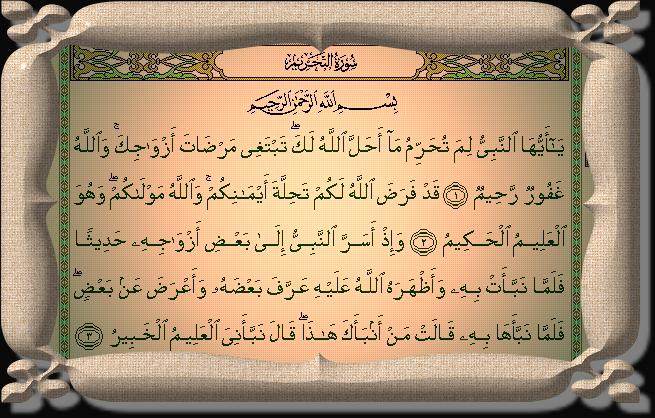 سُورَةُ التَّحْرِيمِ
بِسْمِ ٱللَّهِ ٱلرَّحْمَٰنِ ٱلرَّحِيمِ
يَـٰٓأَيُّهَا ٱلنَّبِىُّ لِمَ تُحَرِّمُ مَآ أَحَلَّ ٱللَّهُ لَكَ ۖ تَبْتَغِى مَرْضَاتَ أَزْوَٰجِكَ ۚ وَٱللَّهُ
غَفُورٌ رَّحِيمٌ ١ قَدْ فَرَضَ ٱللَّهُ لَكُمْ تَحِلَّةَ أَيْمَـٰنِكُمْ ۚ وَٱللَّهُ مَوْلَىٰكُمْ ۖ وَهُوَ
ٱلْعَلِيمُ ٱلْحَكِيمُ ٢ وَإِذْ أَسَرَّ ٱلنَّبِىُّ إِلَىٰ بَعْضِ أَزْوَٰجِهِۦ حَدِيثًا
فَلَمَّا نَبَّأَتْ بِهِۦ وَأَظْهَرَهُ ٱللَّهُ عَلَيْهِ عَرَّفَ بَعْضَهُۥ وَأَعْرَضَ عَنۢ بَعْضٍ ۖ
فَلَمَّا نَبَّأَهَا بِهِۦ قَالَتْ مَنْ أَنۢبَأَكَ هَـٰذَا ۖ قَالَ نَبَّأَنِىَ ٱلْعَلِيمُ ٱلْخَبِيرُ ٣